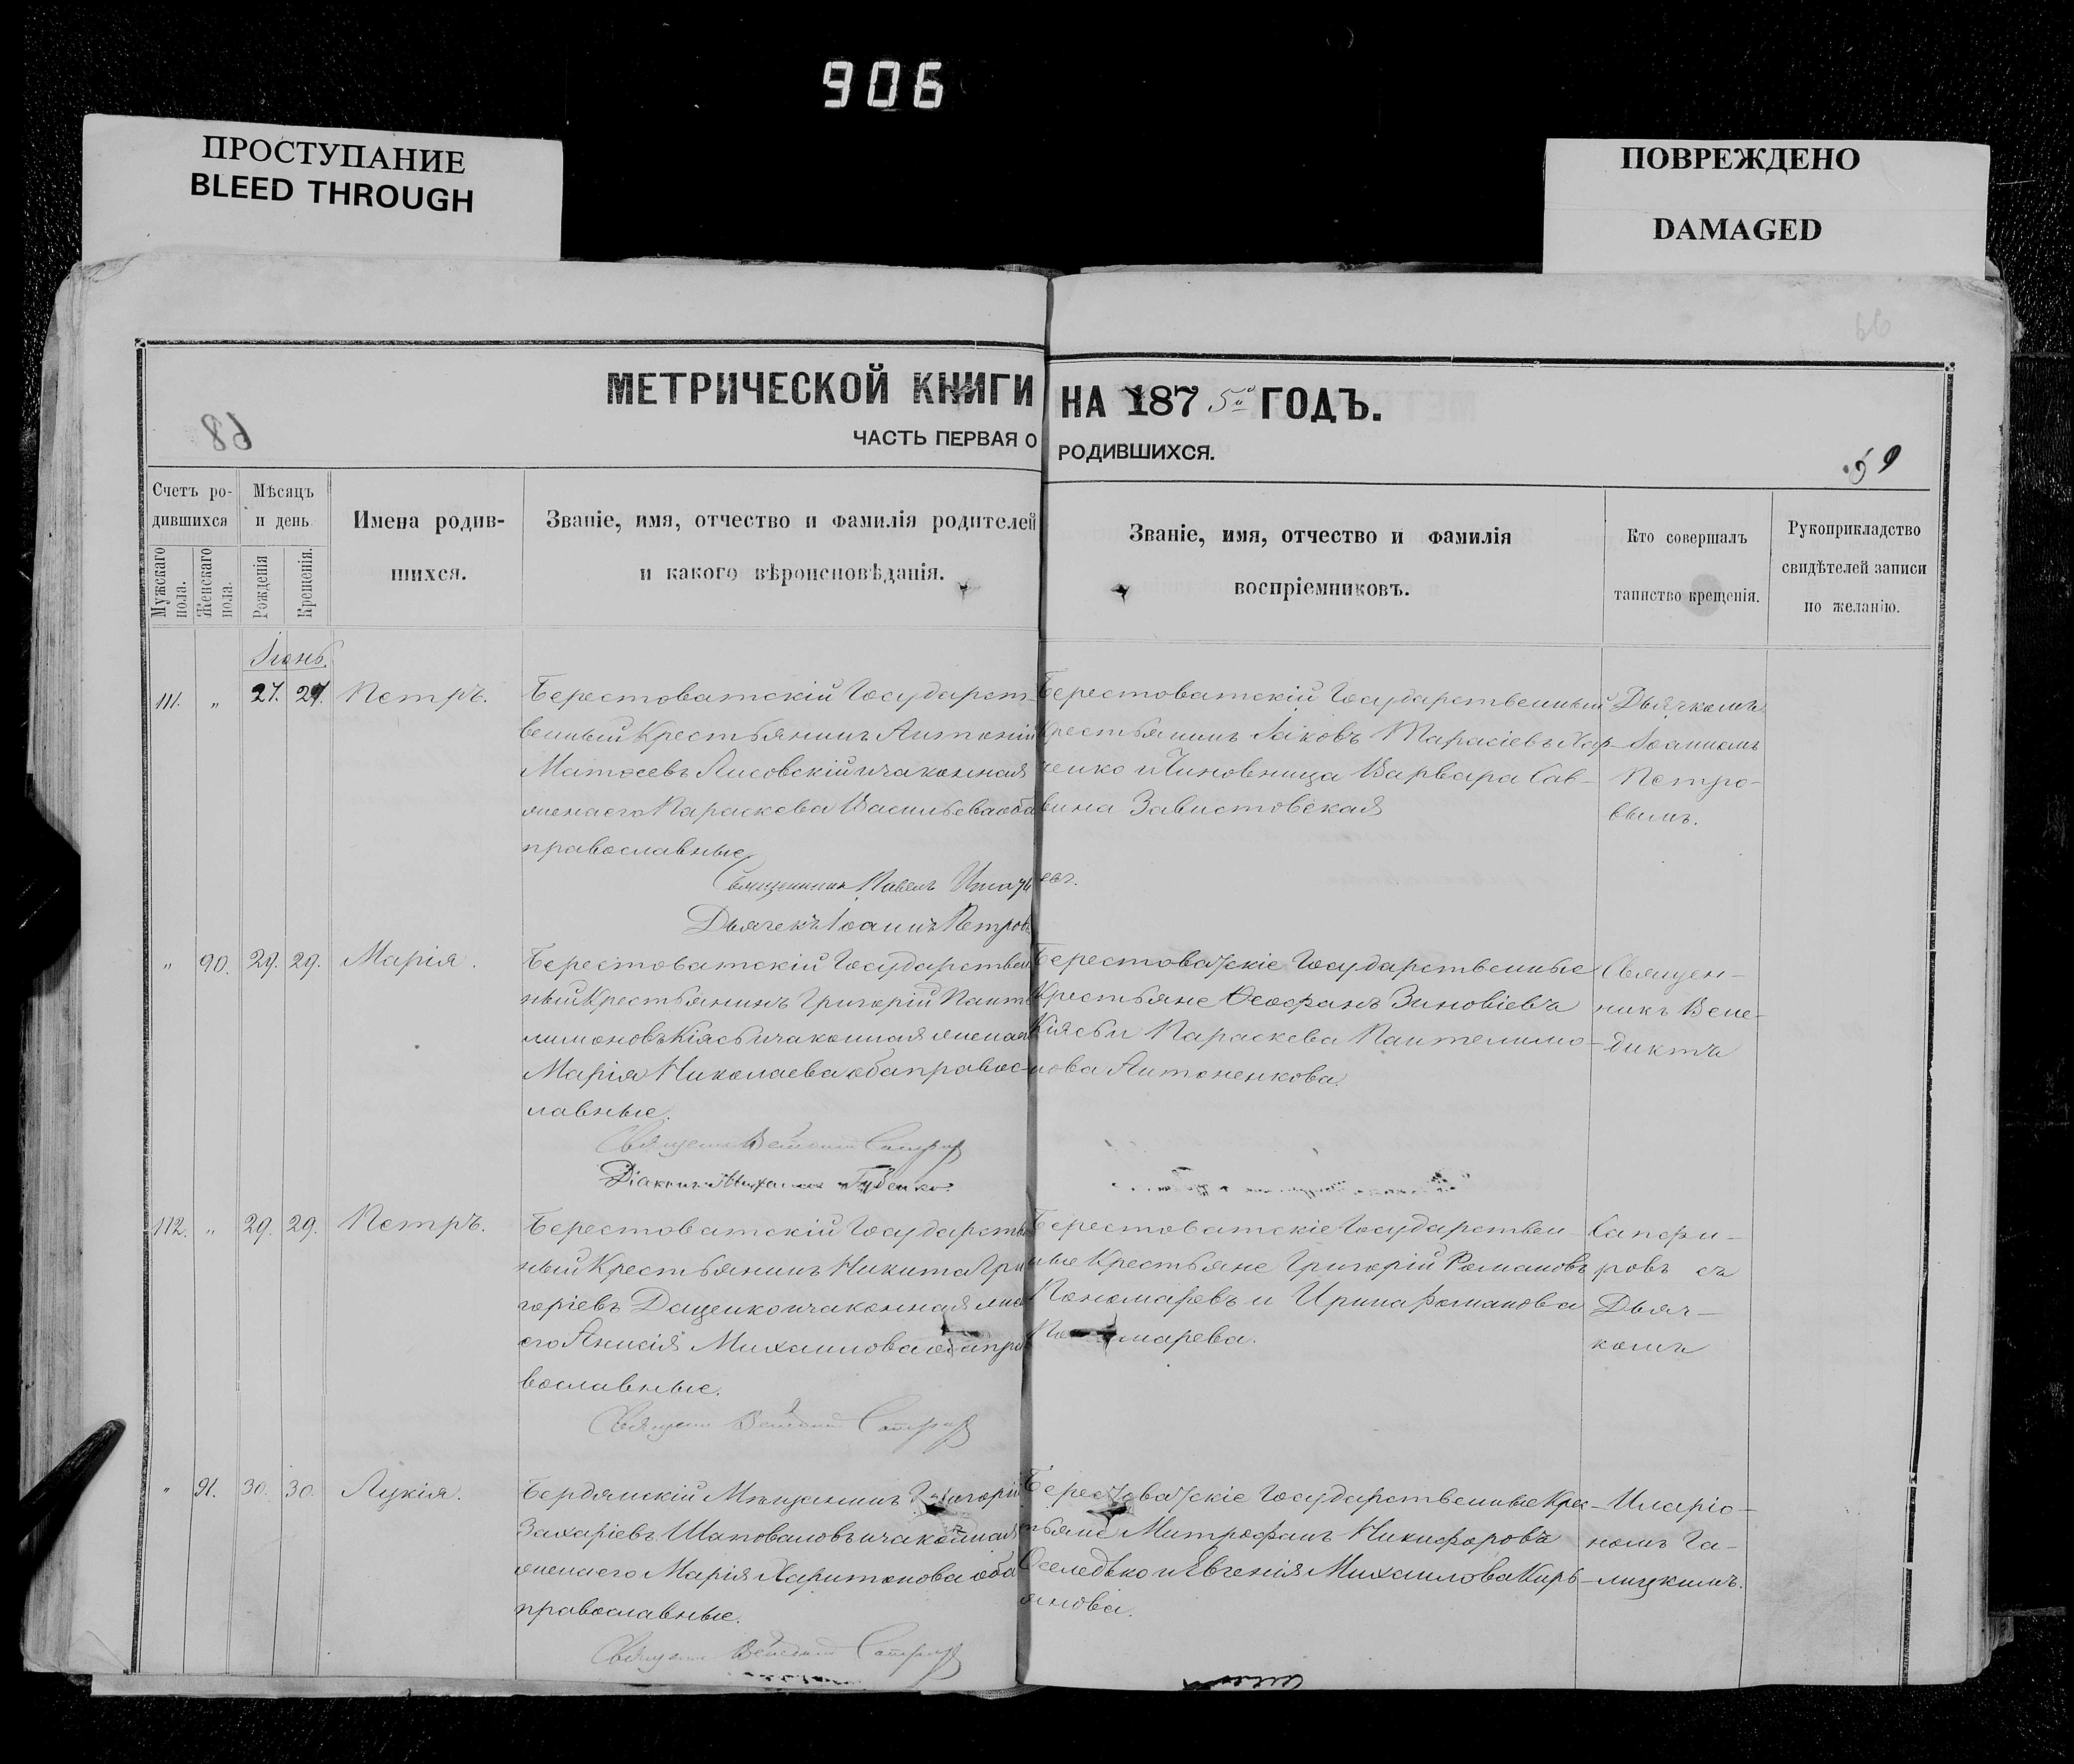 906
ПРОСТУПАНИЕ
BLEED THROUGH
ПОВРЕЖДЕНО
DAMAGED
МЕТРИЧЕСКОЙ КНИГИ НА 1875 ГОДЪ.
ЧАСТЬ ПЕРВАЯ О РОДИВШИХСЯ.
68
59
Счетъ ро-
дившихся
Мужскаго
пола.
Женскаго
пола.
Мѣсяцъ
и день
Рожденія
Крещенія.
Имена родив-
шихся.
Званіе, имя, отчество и фамилія родителей
и какого вѣроисповѣданія.
Званіе, имя, отчество и фамилія
воспріемниковъ.
Кто совершалъ
таинство крещенія.
Рукоприкладство
свидѣтелей записи
по желанію.
Іюнь.
111. " 27. 27. Петръ.
Берестоватскій Государст-
венный Крестьянинъ Антоній
Матѳеевъ Лисовскій и законная
жена его Параскева Васильева оба
православные
Священникъ Павелъ
Дьячекъ Іоаннъ Петровъ
Берестоватскій Государственный
Крестьянинъ Іаковъ Тарасіевъ Хар-
ченко и Чиновница Варвара Сав-
вина Завистовская
Дьячкомъ
Іоанномъ
Петро-
вымъ.
" 90. 29. 29. Марія.
Берестоватскій Государствен
ный Крестьянинъ Григорій Панте
лимоновъ Кіясь и законная жена его
Марія Николаева оба правос-
лавные.
Діаконъ Михаилъ Губенко.
Берестоватскіе Государственные
Крестьяне Ѳеофанъ Зиновіевъ
Кіясь и Параскева Пантелимо-
нова Антоненкова.
Священ-
никъ Вене-
диктъ
112. " 29. 29. Петръ.
Берестоватскій Государстве
ный Крестьянинъ Никита Гри
горіевъ Даценко и законная жена
его Анисія Михаилова оба пра
вославные.
Берестоватскіе Государствен
ные Крестьяне Григорій Романовъ
Пономаревъ и Ирина Романова
Пономарева.
Сапфи-
ровъ съ
Дьяч-
комъ
" 91. 30. 30. Лукія.
Бердянскій Мѣщанинъ Григорій
Захаріевъ Шаповаловъ и законная
жена его Марія Харитонова оба
православные.
Берестоватскіе Государственные Крес-
тьяне Митрофанъ Никифоровъ
Оселедько и Евгенія Михаилова Кирь-
янова.
Иларіо-
номъ Га-
лицкимъ.